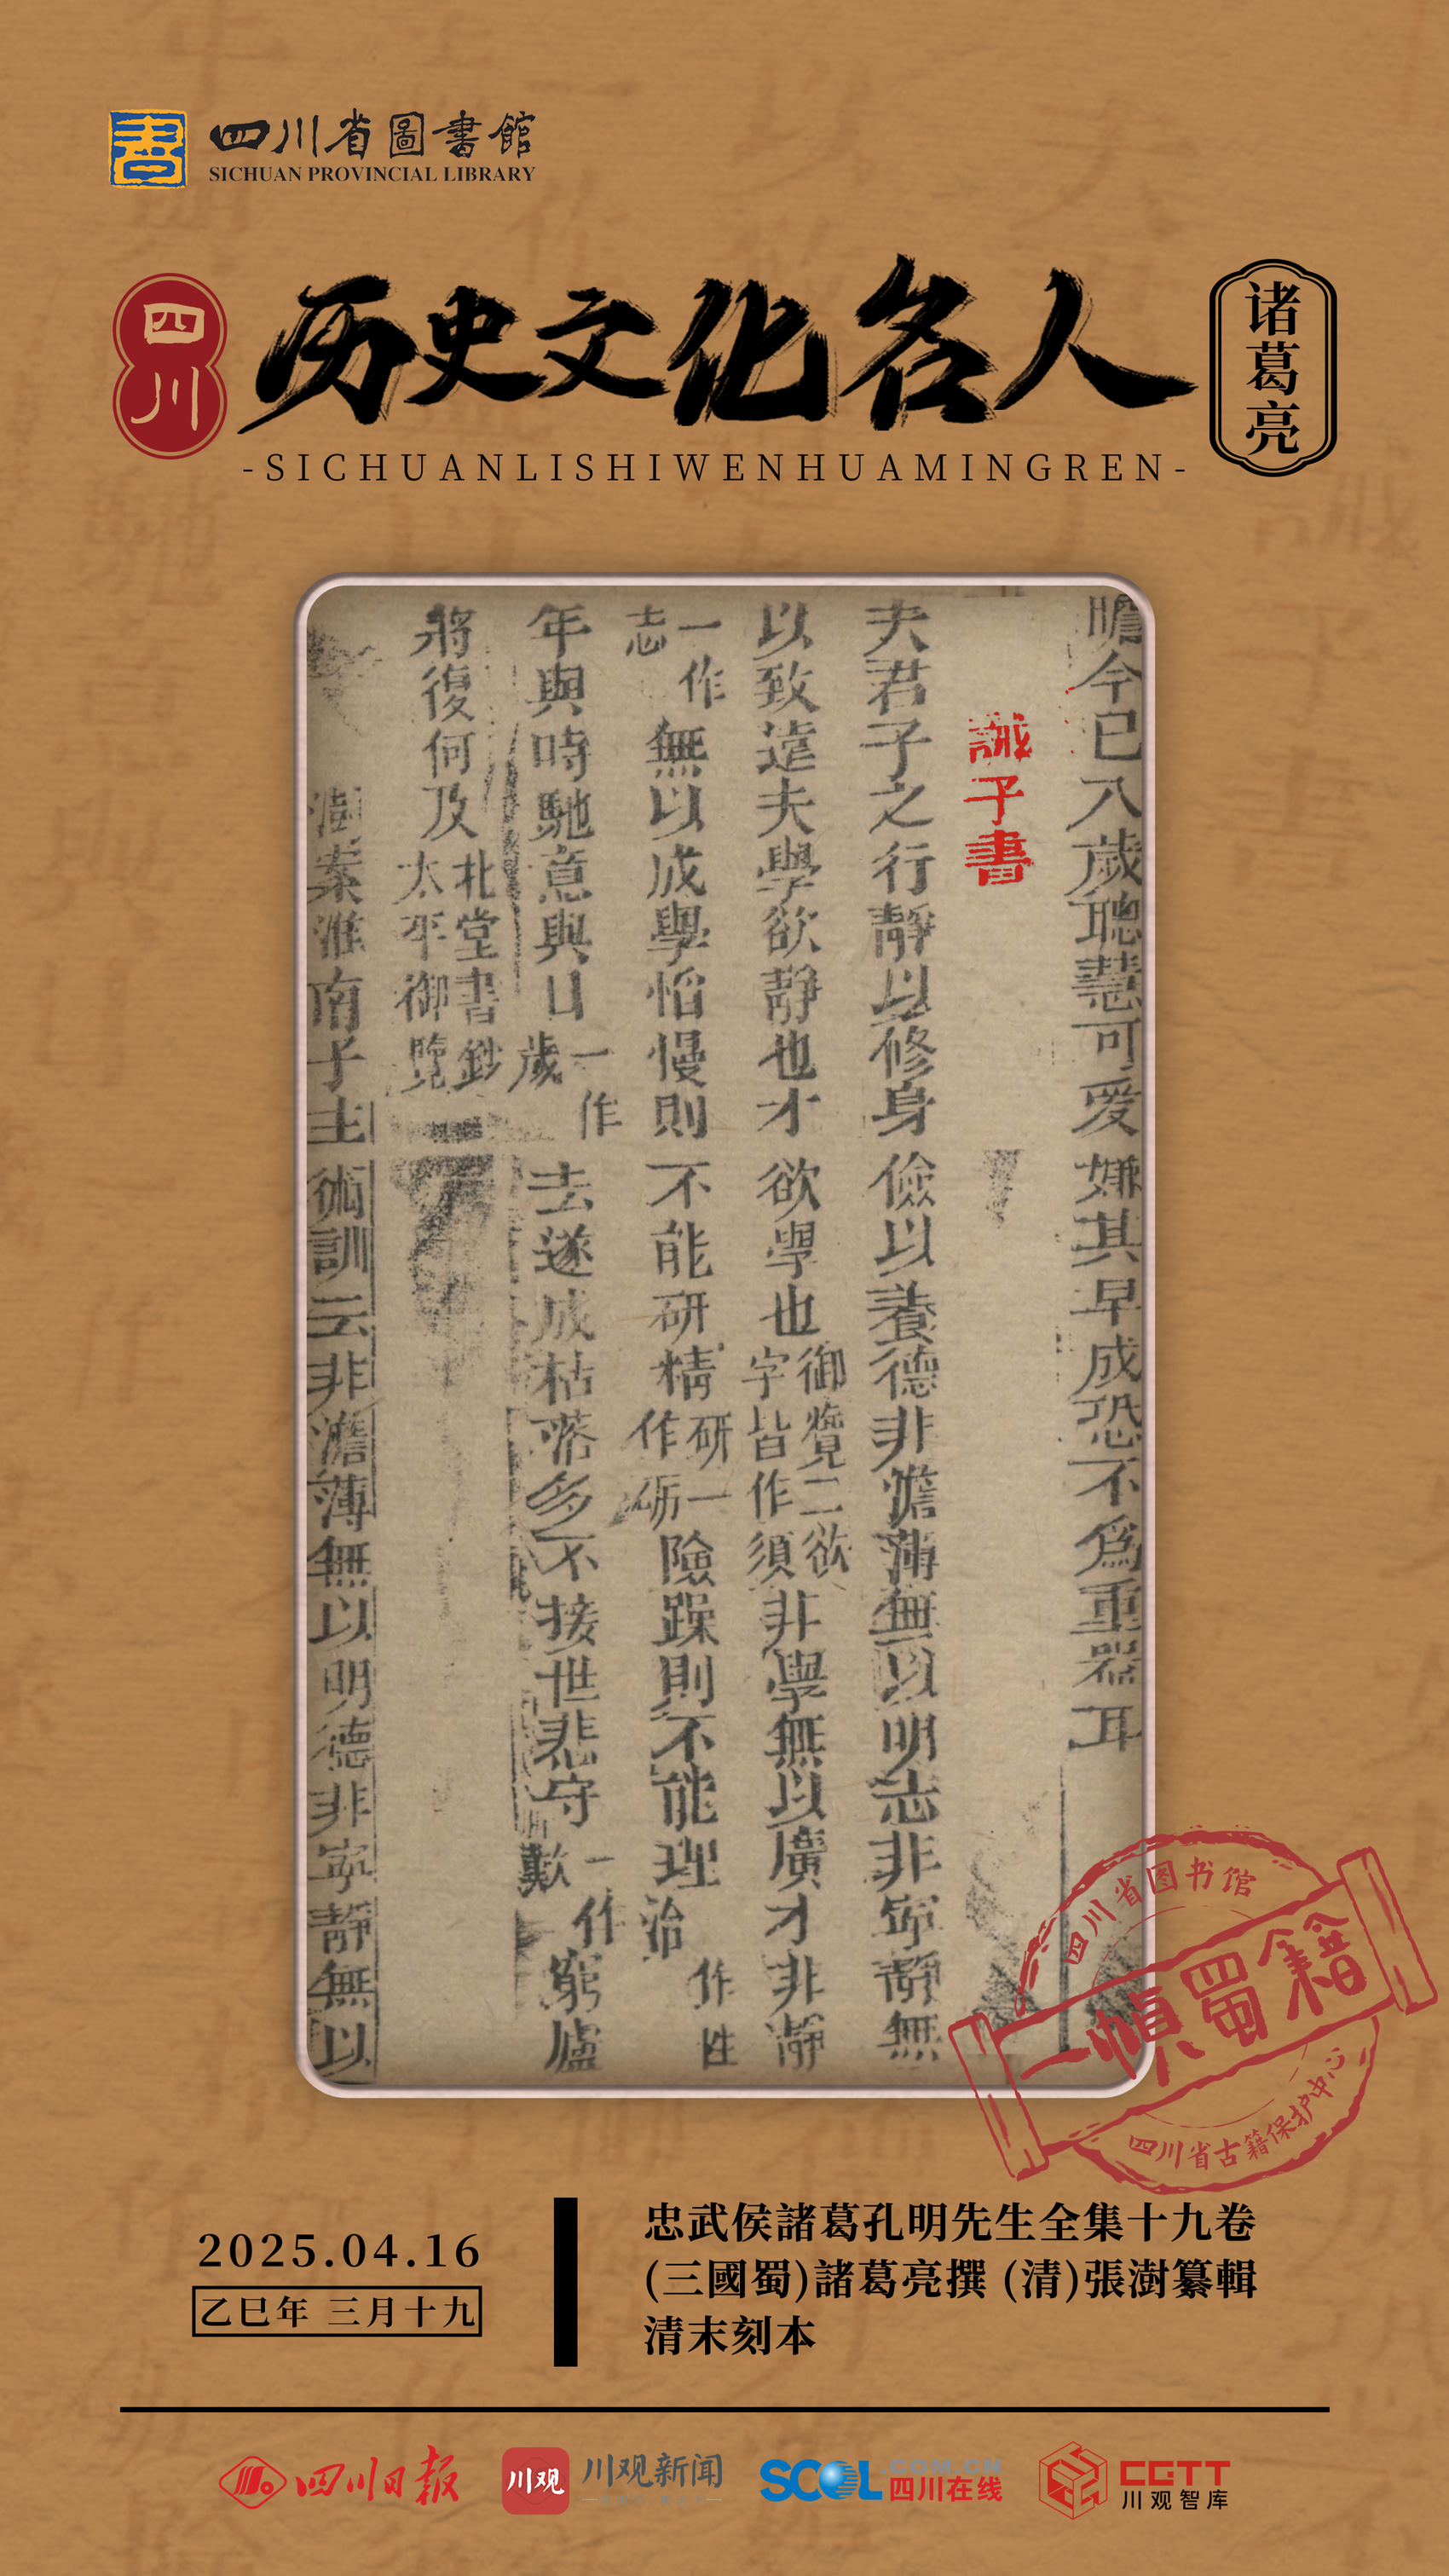 書
四川省圖書館
SICHUAN PROVINCIAL LIBRARY
四川
历史文化名人
诸葛亮
-SICHUANLISHIWENHUAMINGREN-
瞻今已八歲聰慧可愛嫌其早成恐不為重器耳
誡子書
夫君子之行靜以修身儉以養德非澹薄無以明志非寧靜無
以致遠夫學欲靜也才欲學也御覽二欲字皆作須非學無以廣才非靜
一作志無以成學慆慢則不能研精研一作砺險躁則不能理作性治
年與時馳意與日一作歲去遂成枯落多不接世悲守一作歎窮廬
將復何及北堂書鈔太平御覽
澍案淮南子主術訓云非澹薄無以明德非寧靜無以
四川省图书馆
一幀蜀籍
四川省古籍保护中心
2025.04.16
乙巳年 三月十九
忠武侯諸葛孔明先生全集十九卷
(三國蜀)諸葛亮撰 (清)張澍纂輯
清末刻本
四川日报
川观
川观新闻
SCOL.COM.CN
四川在线
CGTT
川观智库